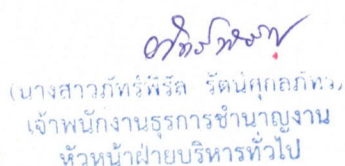 (นางสาวภัทร์พิรัล รัตน์ศุกลภัทร)
เจ้าพนักงานธุรการชำนาญงาน
หัวหน้าฝ่ายบริหารทั่วไป